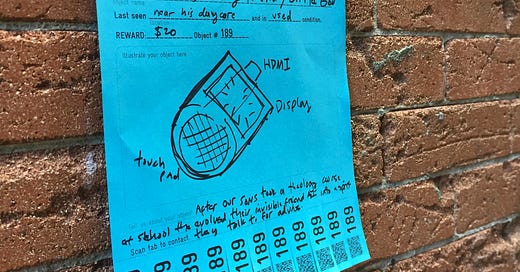 Object name
Last seen near his daycare and in used condition.
REWARD $20 Object # 189
Illustrate your object here
HDMI
Display
touch pad
Tell us about your object
After our sons took a theology course
at school the evolved their invisible friend into a
they talk to for advice
Scan tab to contact
189
189
189
189
189
189
189
189